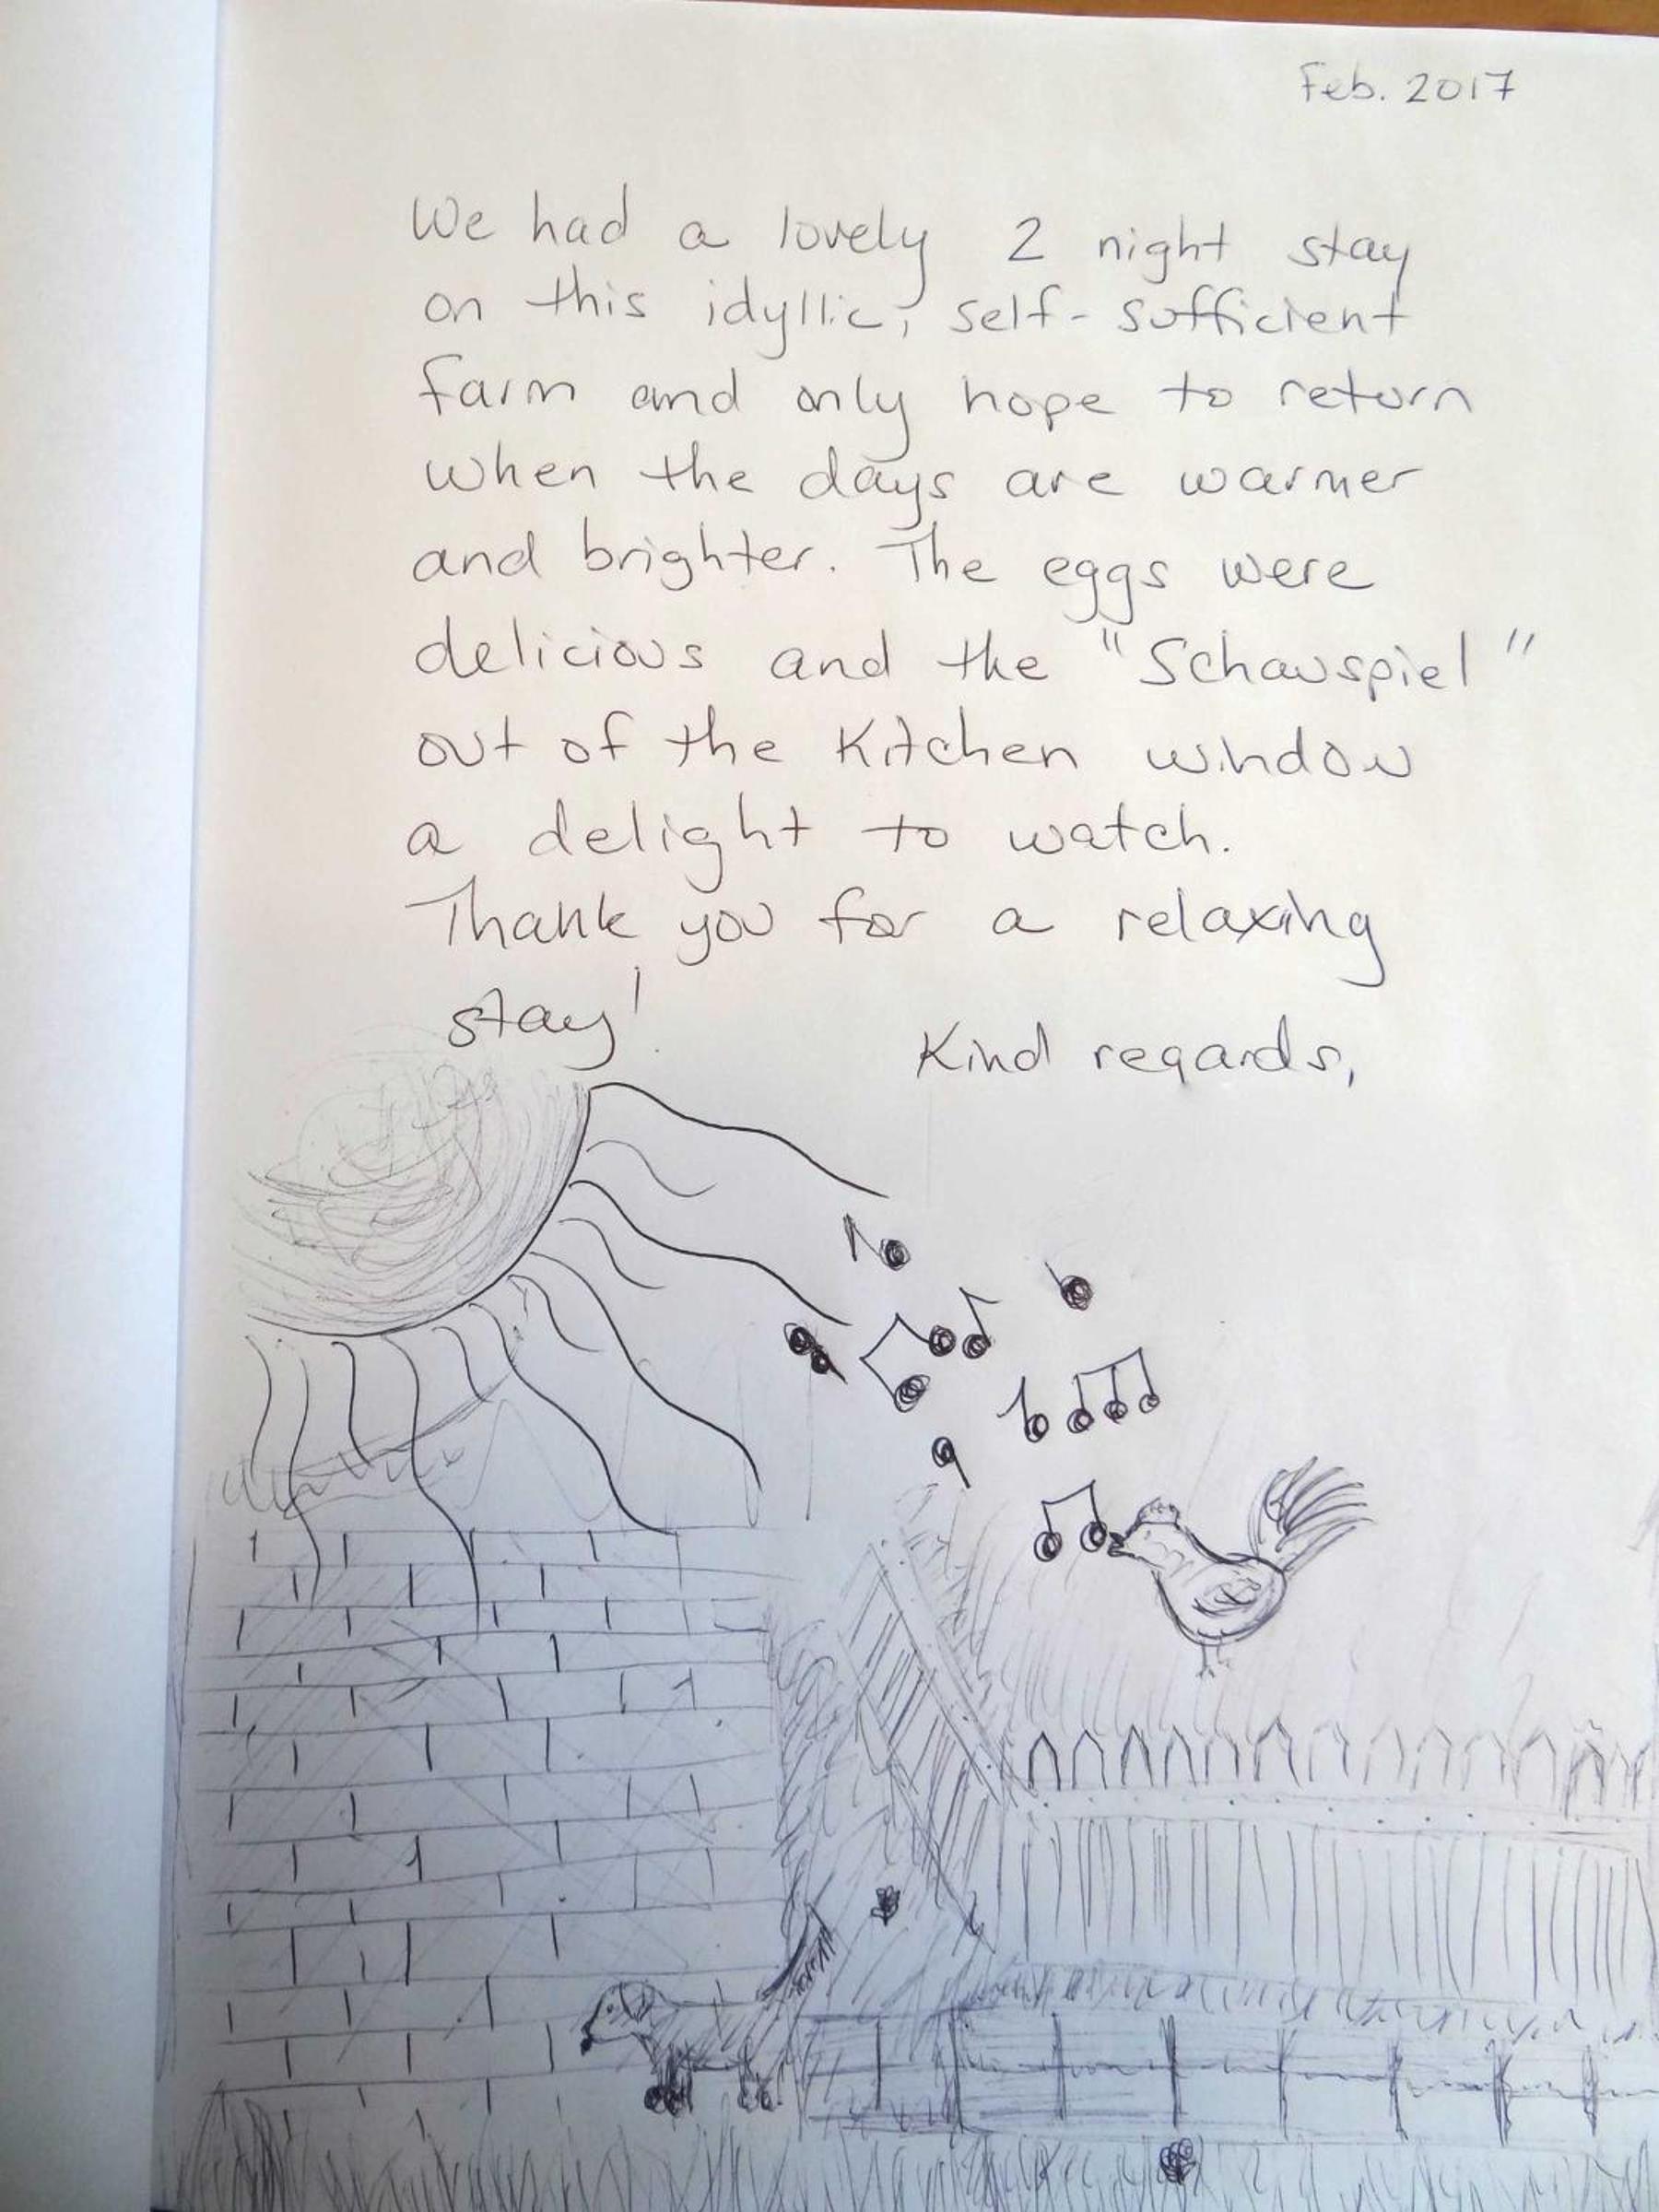 Feb. 2017
We had a lovely 2 night stay
on this idyllic, self-sufficient
farm and only hope to return
when the days are warmer
and brighter. The eggs were
delicious and the "Schauspiel"
out of the Kitchen window
a delight to watch.
Thank you for a relaxing
stay!
Kind regards,